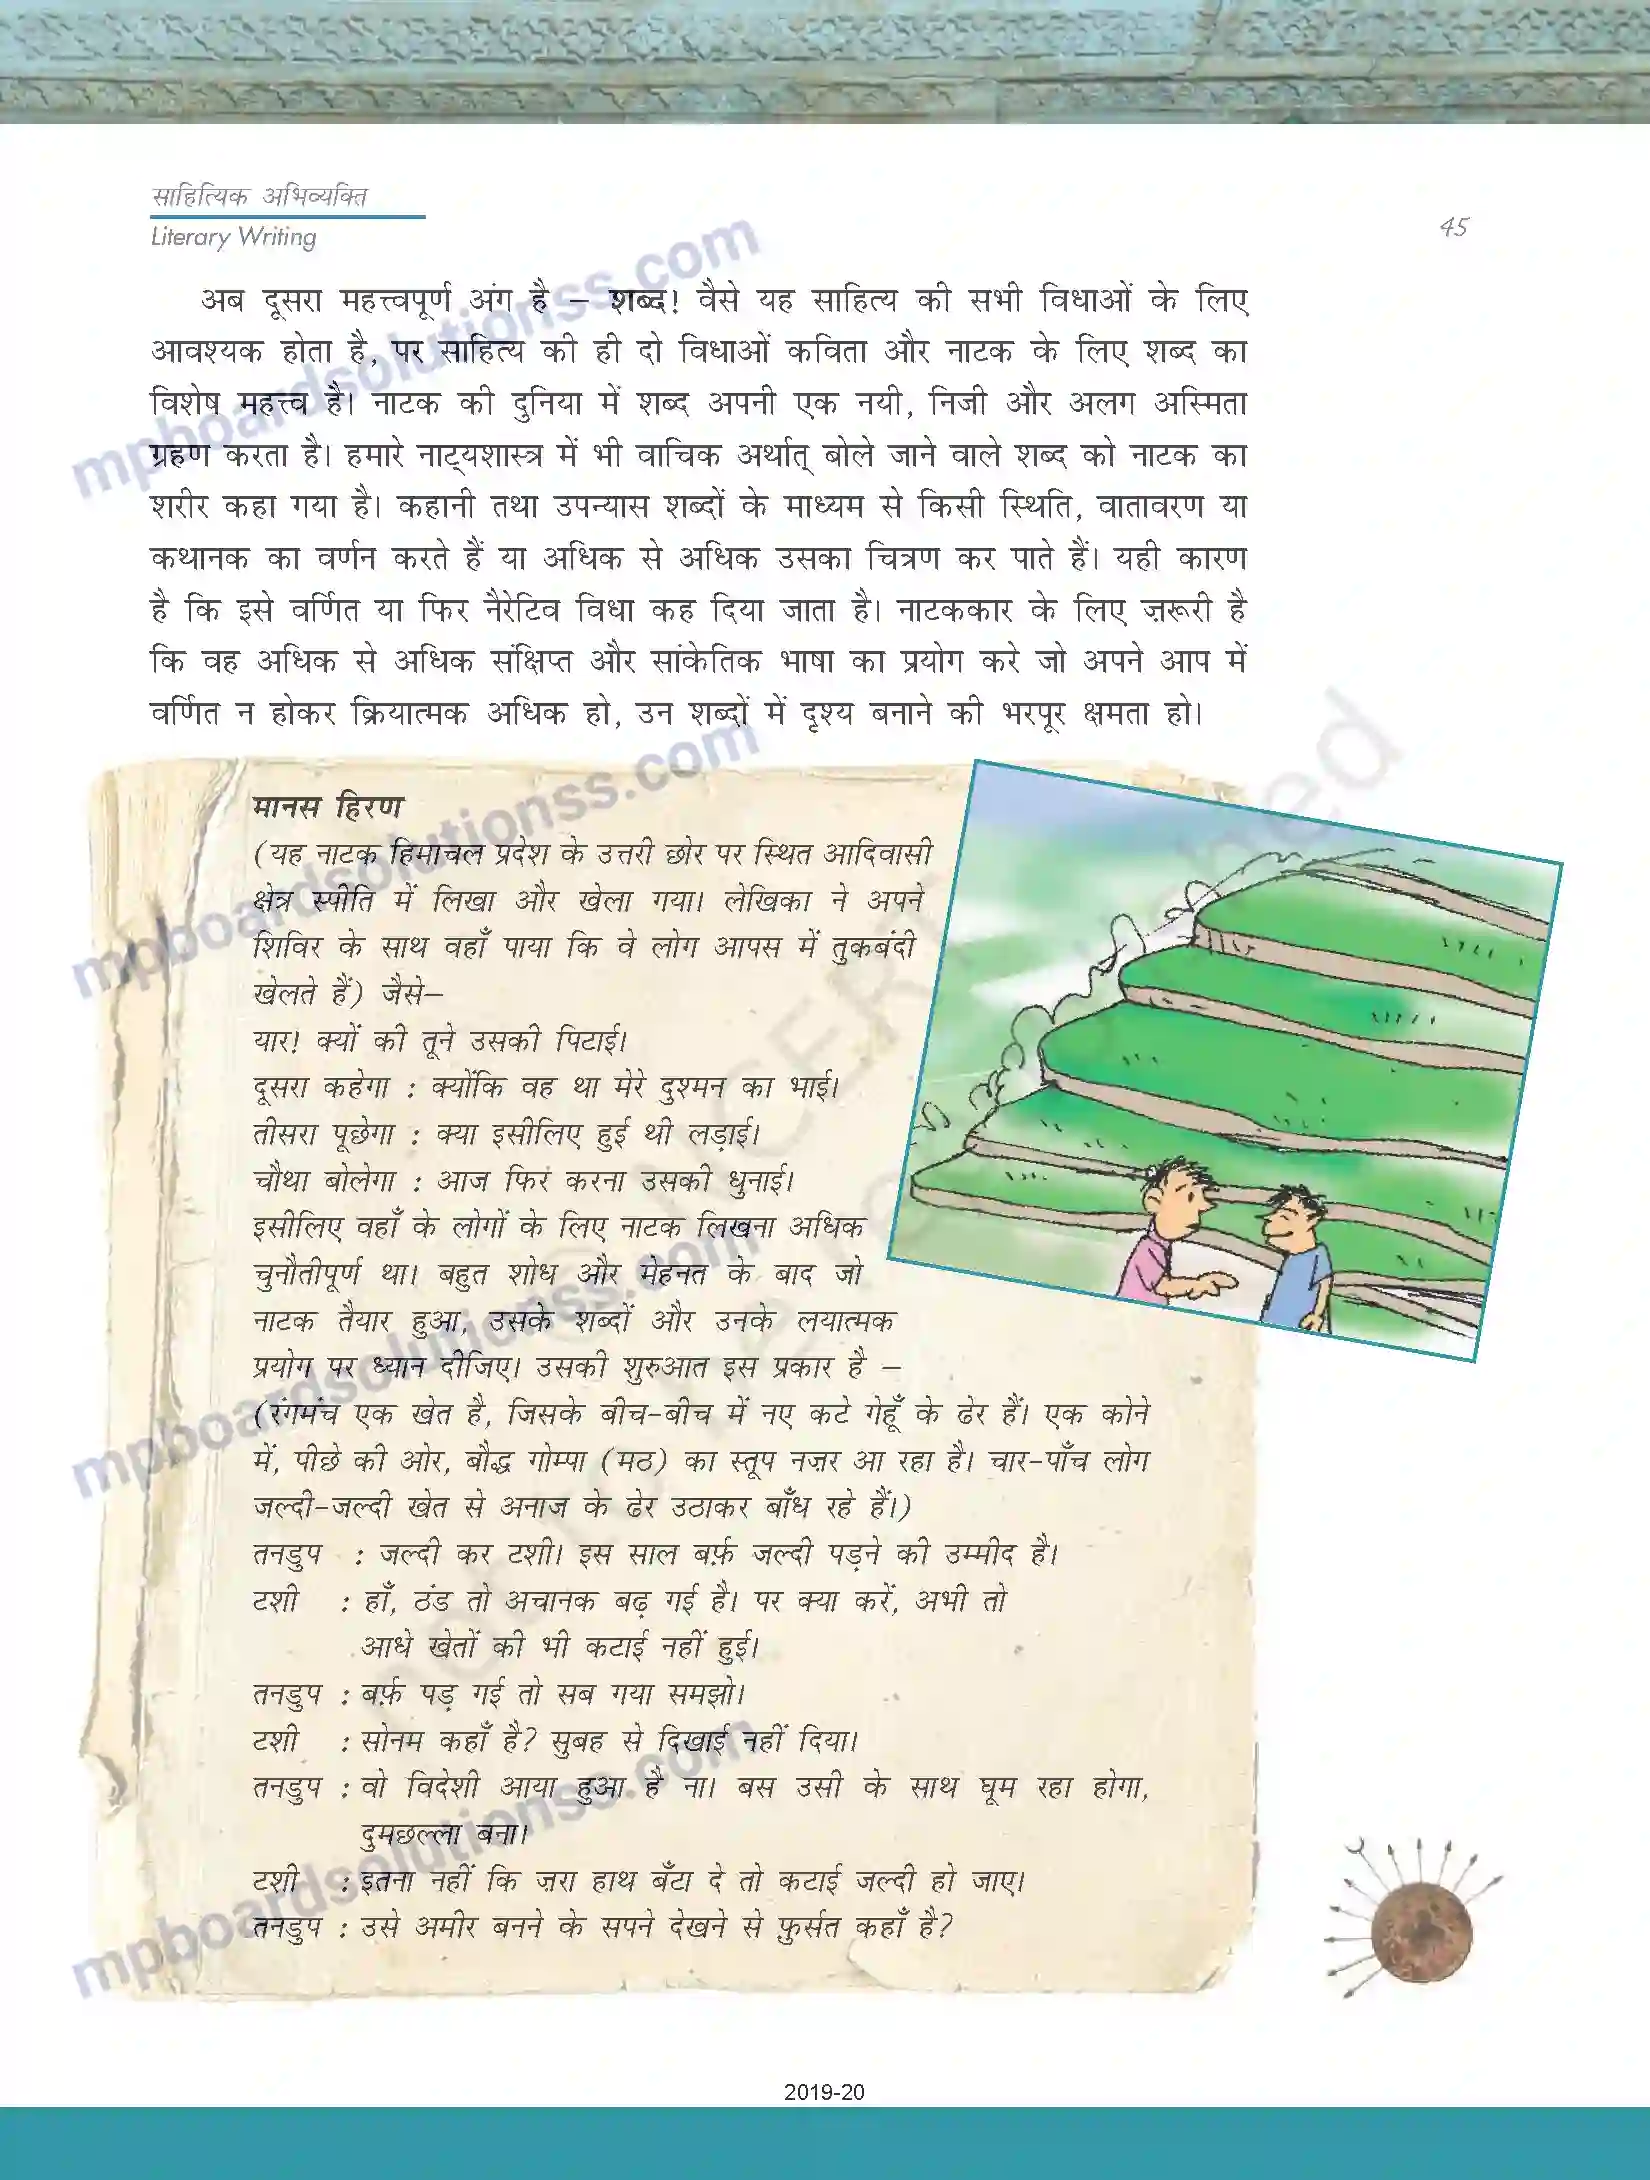 साहित्यिक अभिव्यक्ति
Literary Writing
45
अब दूसरा महत्त्वपूर्ण अंग है – शब्द! वैसे यह साहित्य की सभी विधाओं के लिए
आवश्यक होता है, पर साहित्य की ही दो विधाओं कविता और नाटक के लिए शब्द का
विशेष महत्त्व है। नाटक की दुनिया में शब्द अपनी एक नयी, निजी और अलग अस्मिता
ग्रहण करता है। हमारे नाट्यशास्त्र में भी वाचिक अर्थात् बोले जाने वाले शब्द को नाटक का
शरीर कहा गया है। कहानी तथा उपन्यास शब्दों के माध्यम से किसी स्थिति, वातावरण या
कथानक का वर्णन करते हैं या अधिक से अधिक उसका चित्रण कर पाते हैं। यही कारण
है कि इसे वर्णित या फिर नैरेटिव विधा कह दिया जाता है। नाटककार के लिए ज़रूरी है
कि वह अधिक से अधिक संक्षिप्त और सांकेतिक भाषा का प्रयोग करे जो अपने आप में
वर्णित न होकर क्रियात्मक अधिक हो, उन शब्दों में दृश्य बनाने की भरपूर क्षमता हो।
मानस हिरण
(यह नाटक हिमाचल प्रदेश के उत्तरी छोर पर स्थित आदिवासी
क्षेत्र स्पीति में लिखा और खेला गया। लेखिका ने अपने
शिविर के साथ वहाँ पाया कि वे लोग आपस में तुकबंदी
खेलते हैं) जैसे–
यार! क्यों की तूने उसकी पिटाई।
दूसरा कहेगा : क्योंकि वह था मेरे दुश्मन का भाई।
तीसरा पूछेगा : क्या इसीलिए हुई थी लड़ाई।
चौथा बोलेगा : आज फिर करना उसकी धुनाई।
इसीलिए वहाँ के लोगों के लिए नाटक लिखना अधिक
चुनौतीपूर्ण था। बहुत शोध और मेहनत के बाद जो
नाटक तैयार हुआ, उसके शब्दों और उनके लयात्मक
प्रयोग पर ध्यान दीजिए। उसकी शुरुआत इस प्रकार है –
(रंगमंच एक खेत है, जिसके बीच-बीच में नए कटे गेहूँ के ढेर हैं। एक कोने
में, पीछे की ओर, बौद्ध गोम्पा (मठ) का स्तूप नज़र आ रहा है। चार-पाँच लोग
जल्दी-जल्दी खेत से अनाज के ढेर उठाकर बाँध रहे हैं।)
तनडुप : जल्दी कर टशी। इस साल बर्फ़ जल्दी पड़ने की उम्मीद है।
टशी : हाँ, ठंड तो अचानक बढ़ गई है। पर क्या करें, अभी तो
आधे खेतों की भी कटाई नहीं हुई।
तनडुप : बर्फ़ पड़ गई तो सब गया समझो।
टशी : सोनम कहाँ है? सुबह से दिखाई नहीं दिया।
तनडुप : वो विदेशी आया हुआ है ना। बस उसी के साथ घूम रहा होगा,
दुमछल्ला बना।
टशी : इतना नहीं कि ज़रा हाथ बँटा दे तो कटाई जल्दी हो जाए।
तनडुप : उसे अमीर बनने के सपने देखने से फ़ुर्सत कहाँ है?
2019-20
mpboardsolutionss.com
mpboardsolutionss.com
mpboardsolutionss.com
mpboardsolutionss.com